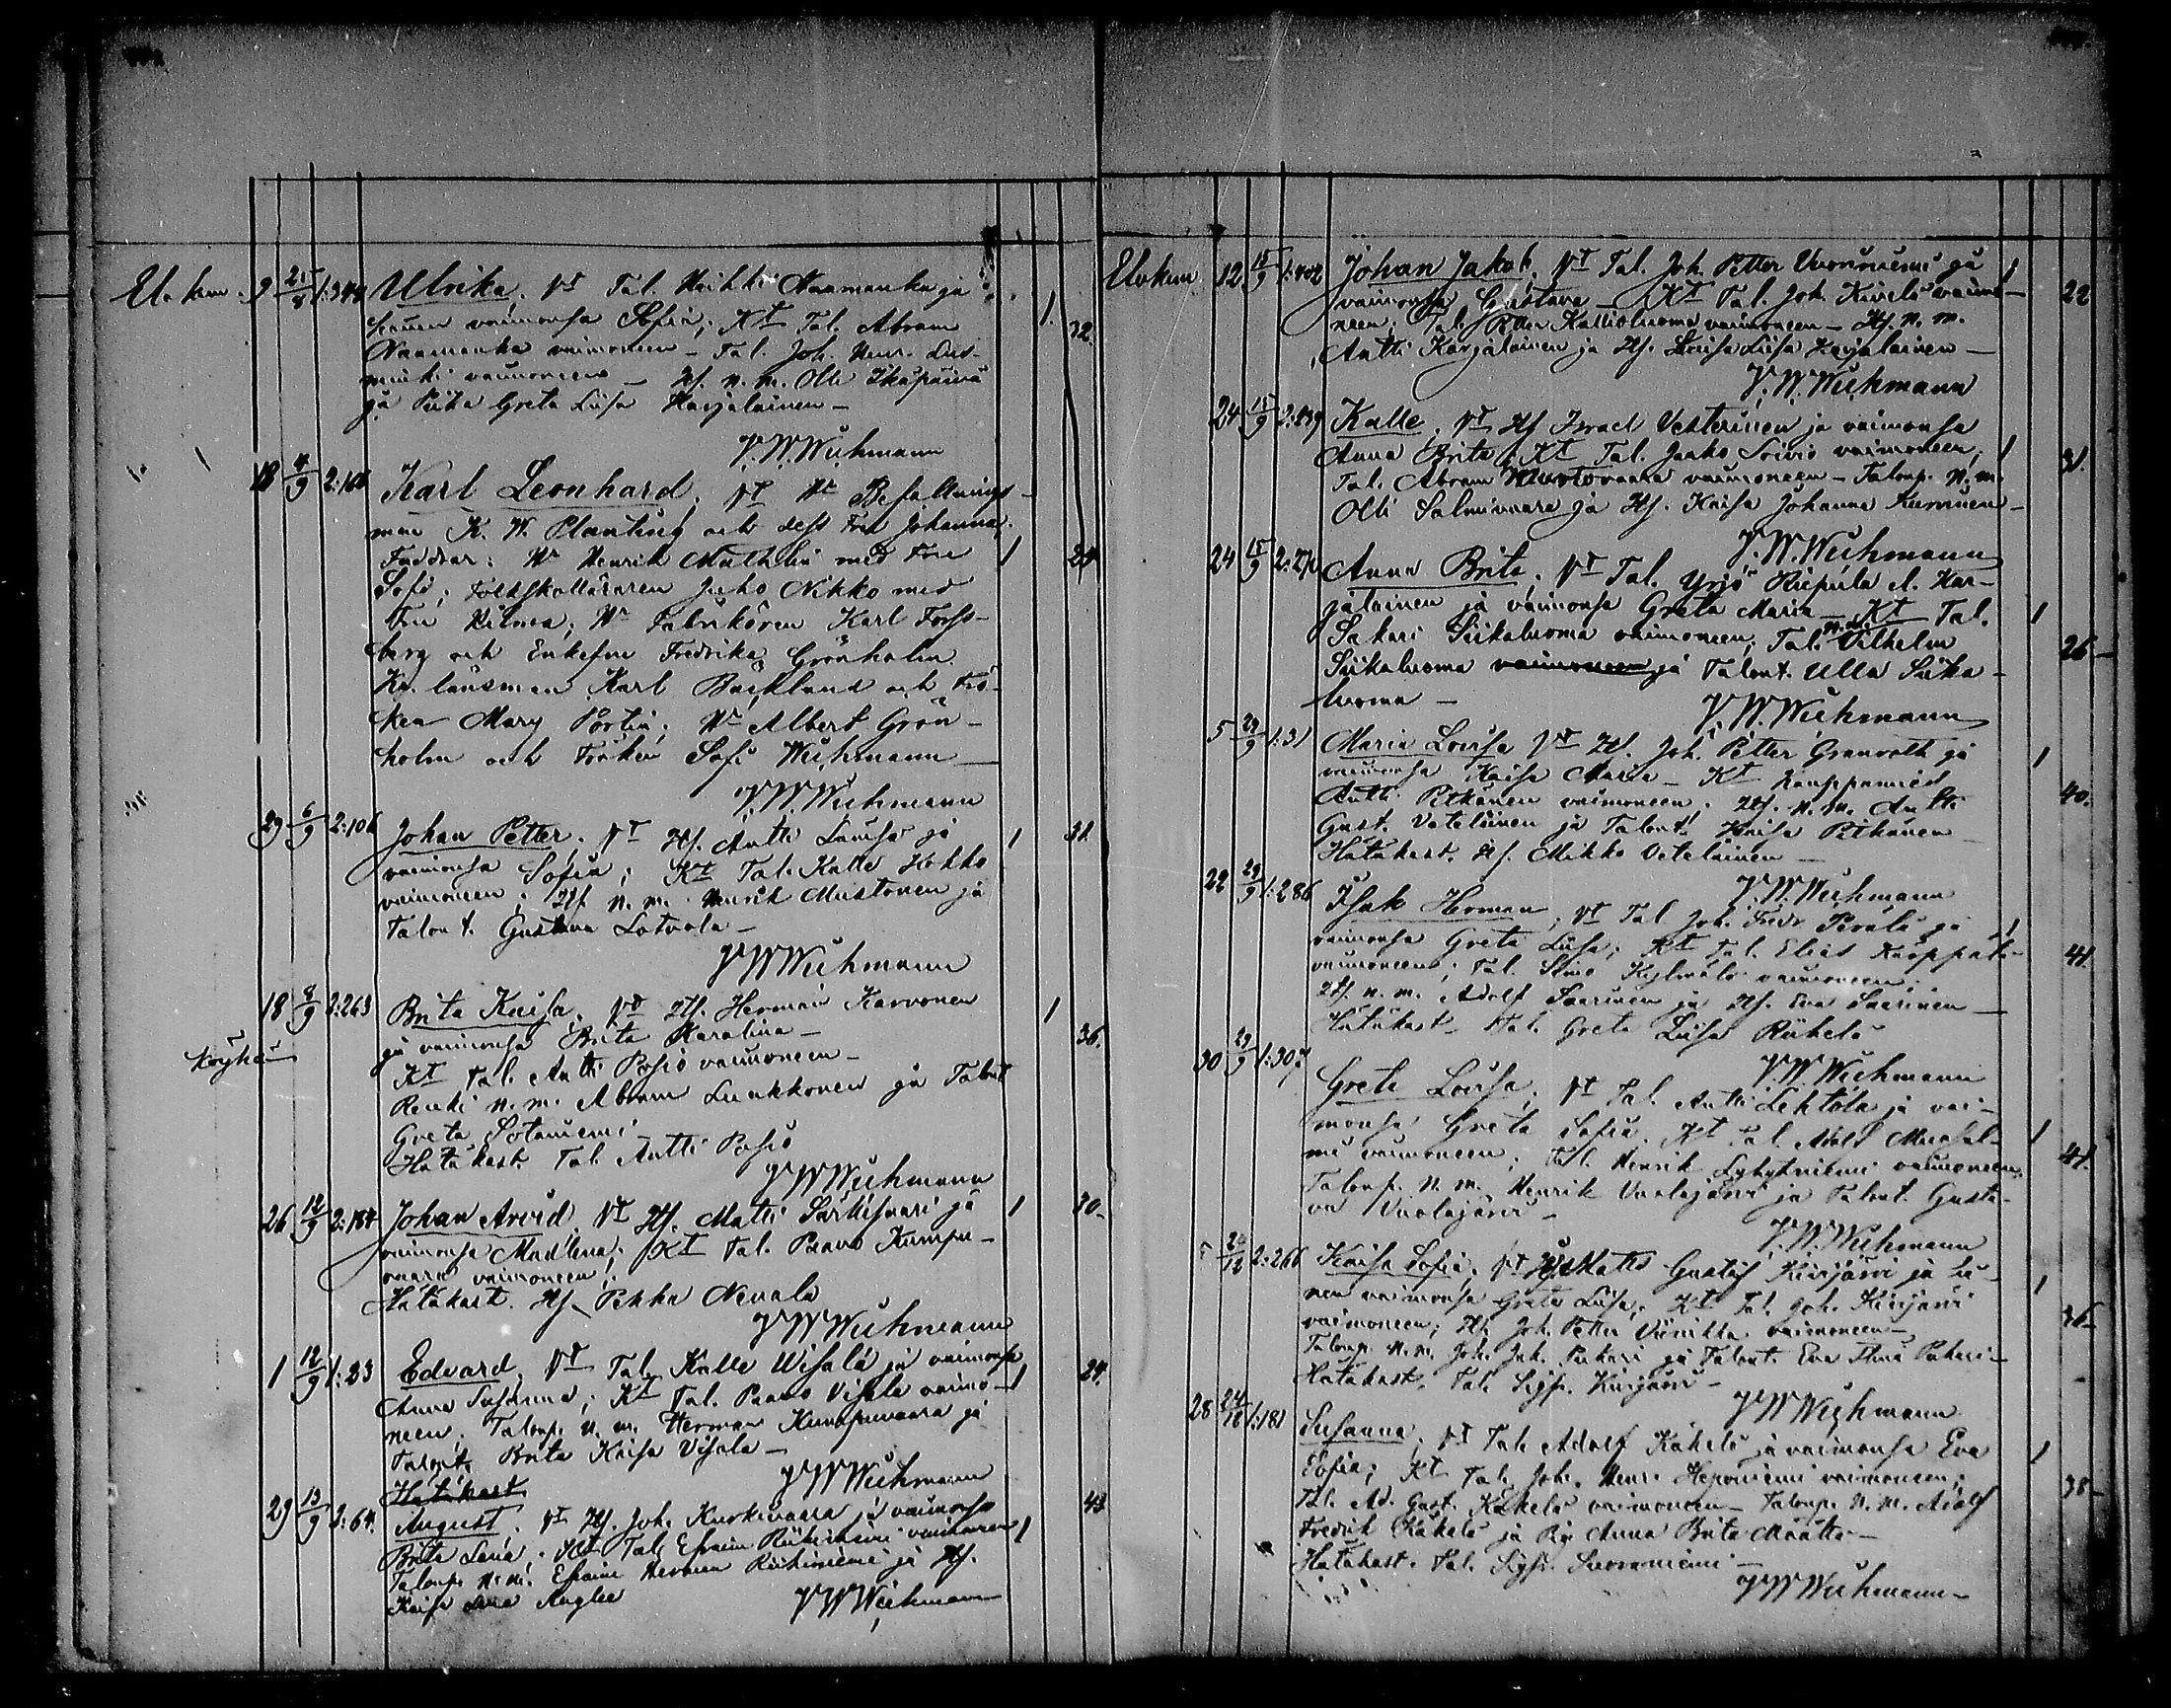 Elokuu. 9 21/8 1:344 Ulrika. Vt Tal. Heikki Naamanka ja
hänen vaimonsa Sofia; Kt Tal. Abram 1. 32.
Naamanka vaimoneen - Tal. Joh. Henr.
vaimoneen - Itf. n. m. Olli Ikäpäivä
ja Piika Greta Liisa Karjalainen -
V. W. Wichmann
18 4/9 2:166 Karl Leonhard. Vt Hr Befallnings-
man K. W. Planting och dess Fru Johanna.
Faddrar: Hr Henrik Mathlin med Fru 1 24
Sofi; Folkskolläraren Juho Nikko med
Fru Hilma; Hr Fabrikören Karl Forss-
berg och Enkefru Fredrika Grönholm.
Kr. länsman Karl Bäcklund och Frö-
ken Mary Portin; Hr Albert Grön-
holm och Fröken Sofi Wichmann -
V. W. Wichmann
29 6/9 2:106 Johan Petter. Vt Itf. Antti ja 1 31.
vaimonsa Sofia; Kt Tal. Kalle Kokko
vaimoneen; Itf. n. m. Henrik Mustonen ja
Talont. Gustava Lotvola -
V W Wichmann
18 8/9 2:263 Brita Kaisa. Vt Itf. Herman Karvonen 1
Köyhä ja vaimonsa Brita Karolina - 36.
Kt Tal. Antti Posio vaimoneen -
Renki n. m. Abram Luukkonen ja Talont
Greta Sotaniemi
Hätäkast. Tal. Antti Posio
V W Wichmann
26 12/9 2:184 Johan Arvid Vt Itf. Matti ja 1 30.
vaimonsa Madlena; Kt Tal. Paavo Kumpu-
vaara vaimoneen;
Hätäkast. Itf. Pekka Nevala
V W Wichmann
1 12/9 1:23 Edvard. Vt Tal. Kalle Wisala ja vaimonsa
Anna Susanna; Kt Tal. Paavo Visala vaimo- 1 24.
neen. Talonp. n. m. Herman Kumpuvaara ja
Talont. Brita Kaisa Visala -
Hätäkast. V W Wichmann
29 13/9 2:64. August. Vt Itf. Joh. Kurkivaara ja vaimonsa 43
Brita Lena; Kt Tal. Efraim Riihiniemi vaimoneen 1
Talonp. n. m. Efraim Herman Riihiniemi ja Itf.
Kaisa Lena
V W Wichmann
Elokuu 12 15/9 1:402 Johan Jakob. Vt Tal. Joh. Petter ja 1
vaimonsa Gustava - Kt Tal. Joh. Kivelä vaimo- 22
neen; Tal. Petter Kallioluoma vaimoneen - Itf. n. m.
Antti Karjalainen ja Itf. Liisa Karjalainen -
V. W. Wichmann
24 15/9 2:839 Kalle. Vt Itf Israel Vesterinen ja vaimonsa
Anna Brita; Kt Tal. Jaako Soivio vaimoneen; 1 31.
Tal. Abram Mustovaara vaimoneen - Talonp. n. m.
Olli Salmivaara ja Itf. Kaisa Johanna -
V. W. Wichmann
24 15/9 Anna Brita. Vt Tal. Yrjö Riepula l. Kar-
jalainen ja vaimonsa Greta Maria - Kt Tal. 1
Sakari Siikaluoma vaimoneen; Tal. n. m. Vilhelm 26 -
Siikaluoma vaimoneen ja Talont. Ulla Siika-
luoma -
V. W. Wichmann
5 29/9 1:31 Maria Lovisa Vt Itf. Joh. Petter Granroth ja 1
vaimonsa Kaisa Maria - Kt Kauppamies
Antti Pitkänen vaimoneen; Itf. n. m. Antti 40.
Gust. Veteläinen ja Talont. Kaisa Pitkänen
Hätäkast. Itf. Mikko Veteläinen -
V. W. Wichmann
22 29/9 1:286 Isak Herman; Vt Tal Joh. Fredr Perälä ja 1
vaimonsa Greta Liisa; Kt Tal. Elias Karppala
vaimoneen. Tal. Simo Kylmälä vaimoneen; 41.
Itf. n. m. Adolf Saarinen ja Itf. Eva Saarinen -
Hätäkast - Tal. Greta Liisa Riihelä
V W Wichmann
30 29/9 1:307 Greta Lovisa; Vt Tal. Antti Lehtola ja vai-
monsa Greta Sofia. Kt Tal Adolf 1
vaimoneen; Tal. Henrik Lyhykniemi vaimoneen. 41.
Talonp. n. m. Henrik Vaalajärvi ja Talont. Gusta-
va Vaalajärvi -
V. W. Wichmann
5 24/12 2:266 Kaisa Sofia. Vt Itf Matts Gustaf Kivijärvi ja hä- 1
nen vaimonsa Greta Liisa; Kt Tal. Joh. Kivijärvi
vaimoneen; Itf. Joh. Petter Viinikka vaimoneen - 36 -
Talonp. n. m. Joh. Jak. Pekari ja Talont. Eva Stina Pekari -
Hätäkast. Tal. Sigfr. Kivijärvi -
V W Wichmann
28 24/12 1:181 Susanna; Vt Tal. Adolf Käkelä ja vaimonsa Eva 1
Sofia; Kt Tal. Joh. Henr. Heponiemi vaimoneen;
Tal. Ad. Gust. Käkelä vaimoneen - Talonp. n. m. Adolf 38 -
Fredrik Käkelä ja Piir Anna Brita Määttä -
Hätäkast. Tal. Sigfr. Suvanniemi -
V W Wichmann -